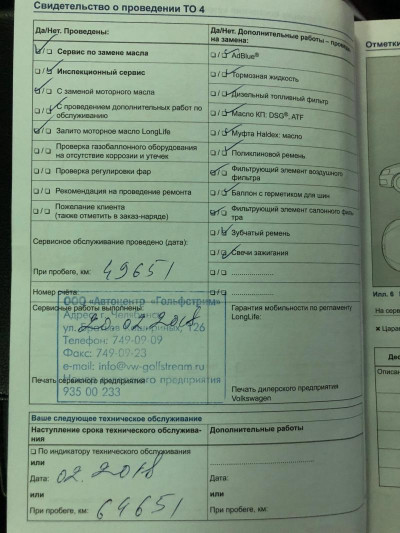 Свидетельство о проведении ТО 4
Да/Нет. Проведены:
☑/☐ Сервис по замене масла
☑/☐ Инспекционный сервис
☑/☐ С заменой моторного масла
☐/☑ С проведением дополнительных работ по
обслуживанию
☑/☐ Залито моторное масло LongLife
☐/☐ Проверка газобаллонного оборудования
на отсутствие коррозии и утечек
☐/☐ Проверка регулировки фар
☐/☐ Рекомендация на проведение ремонта
☐/☐ Пожелание клиента
(также отметить в заказ-наряде)
Сервисное обслуживание проведено (дата):
При пробеге, км: 49651
Номер счёта:
Сервисные работы выполнены:
20.02.2018
ООО «Автоцентр «Гольфстрим»
Телефон: 749-09-09
Факс: 749-09-23
e-mail: info@vw-gallstream.ru
предприятия
935 00 233
Печать сервисного предприятия
Да/Нет. Дополнительные работы –
на замене:
☐/☑ AdBlue®
☐/☑ Тормозная жидкость
☐/☑ Дизельный топливный фильтр
☐/☑ Масло КП: DSG®, ATF
☐/☑ Муфта Haldex: масло
☐/☑ Поликлиновой ремень
☑/☐ Фильтрующий элемент воздушного
фильтра
☐/☑ Баллон с герметиком для шин
☑/☐ Фильтрующий элемент салонного филь
тра
☐/☑ Зубчатый ремень
☐/☑ Свечи зажигания
☐/☐
☐/☐
Гарантия мобильности по регламенту
LongLife:
Печать дилерского предприятия
Volkswagen
Ваше следующее техническое обслуживание
Наступление срока технического обслужива-
ния
☐ По индикатору технического обслуживания
или
Дата: 02.2018
или
При пробеге, км: 64651
Дополнительные работы
Дата:
или
При пробеге, км:
Отметки
Илл. 6